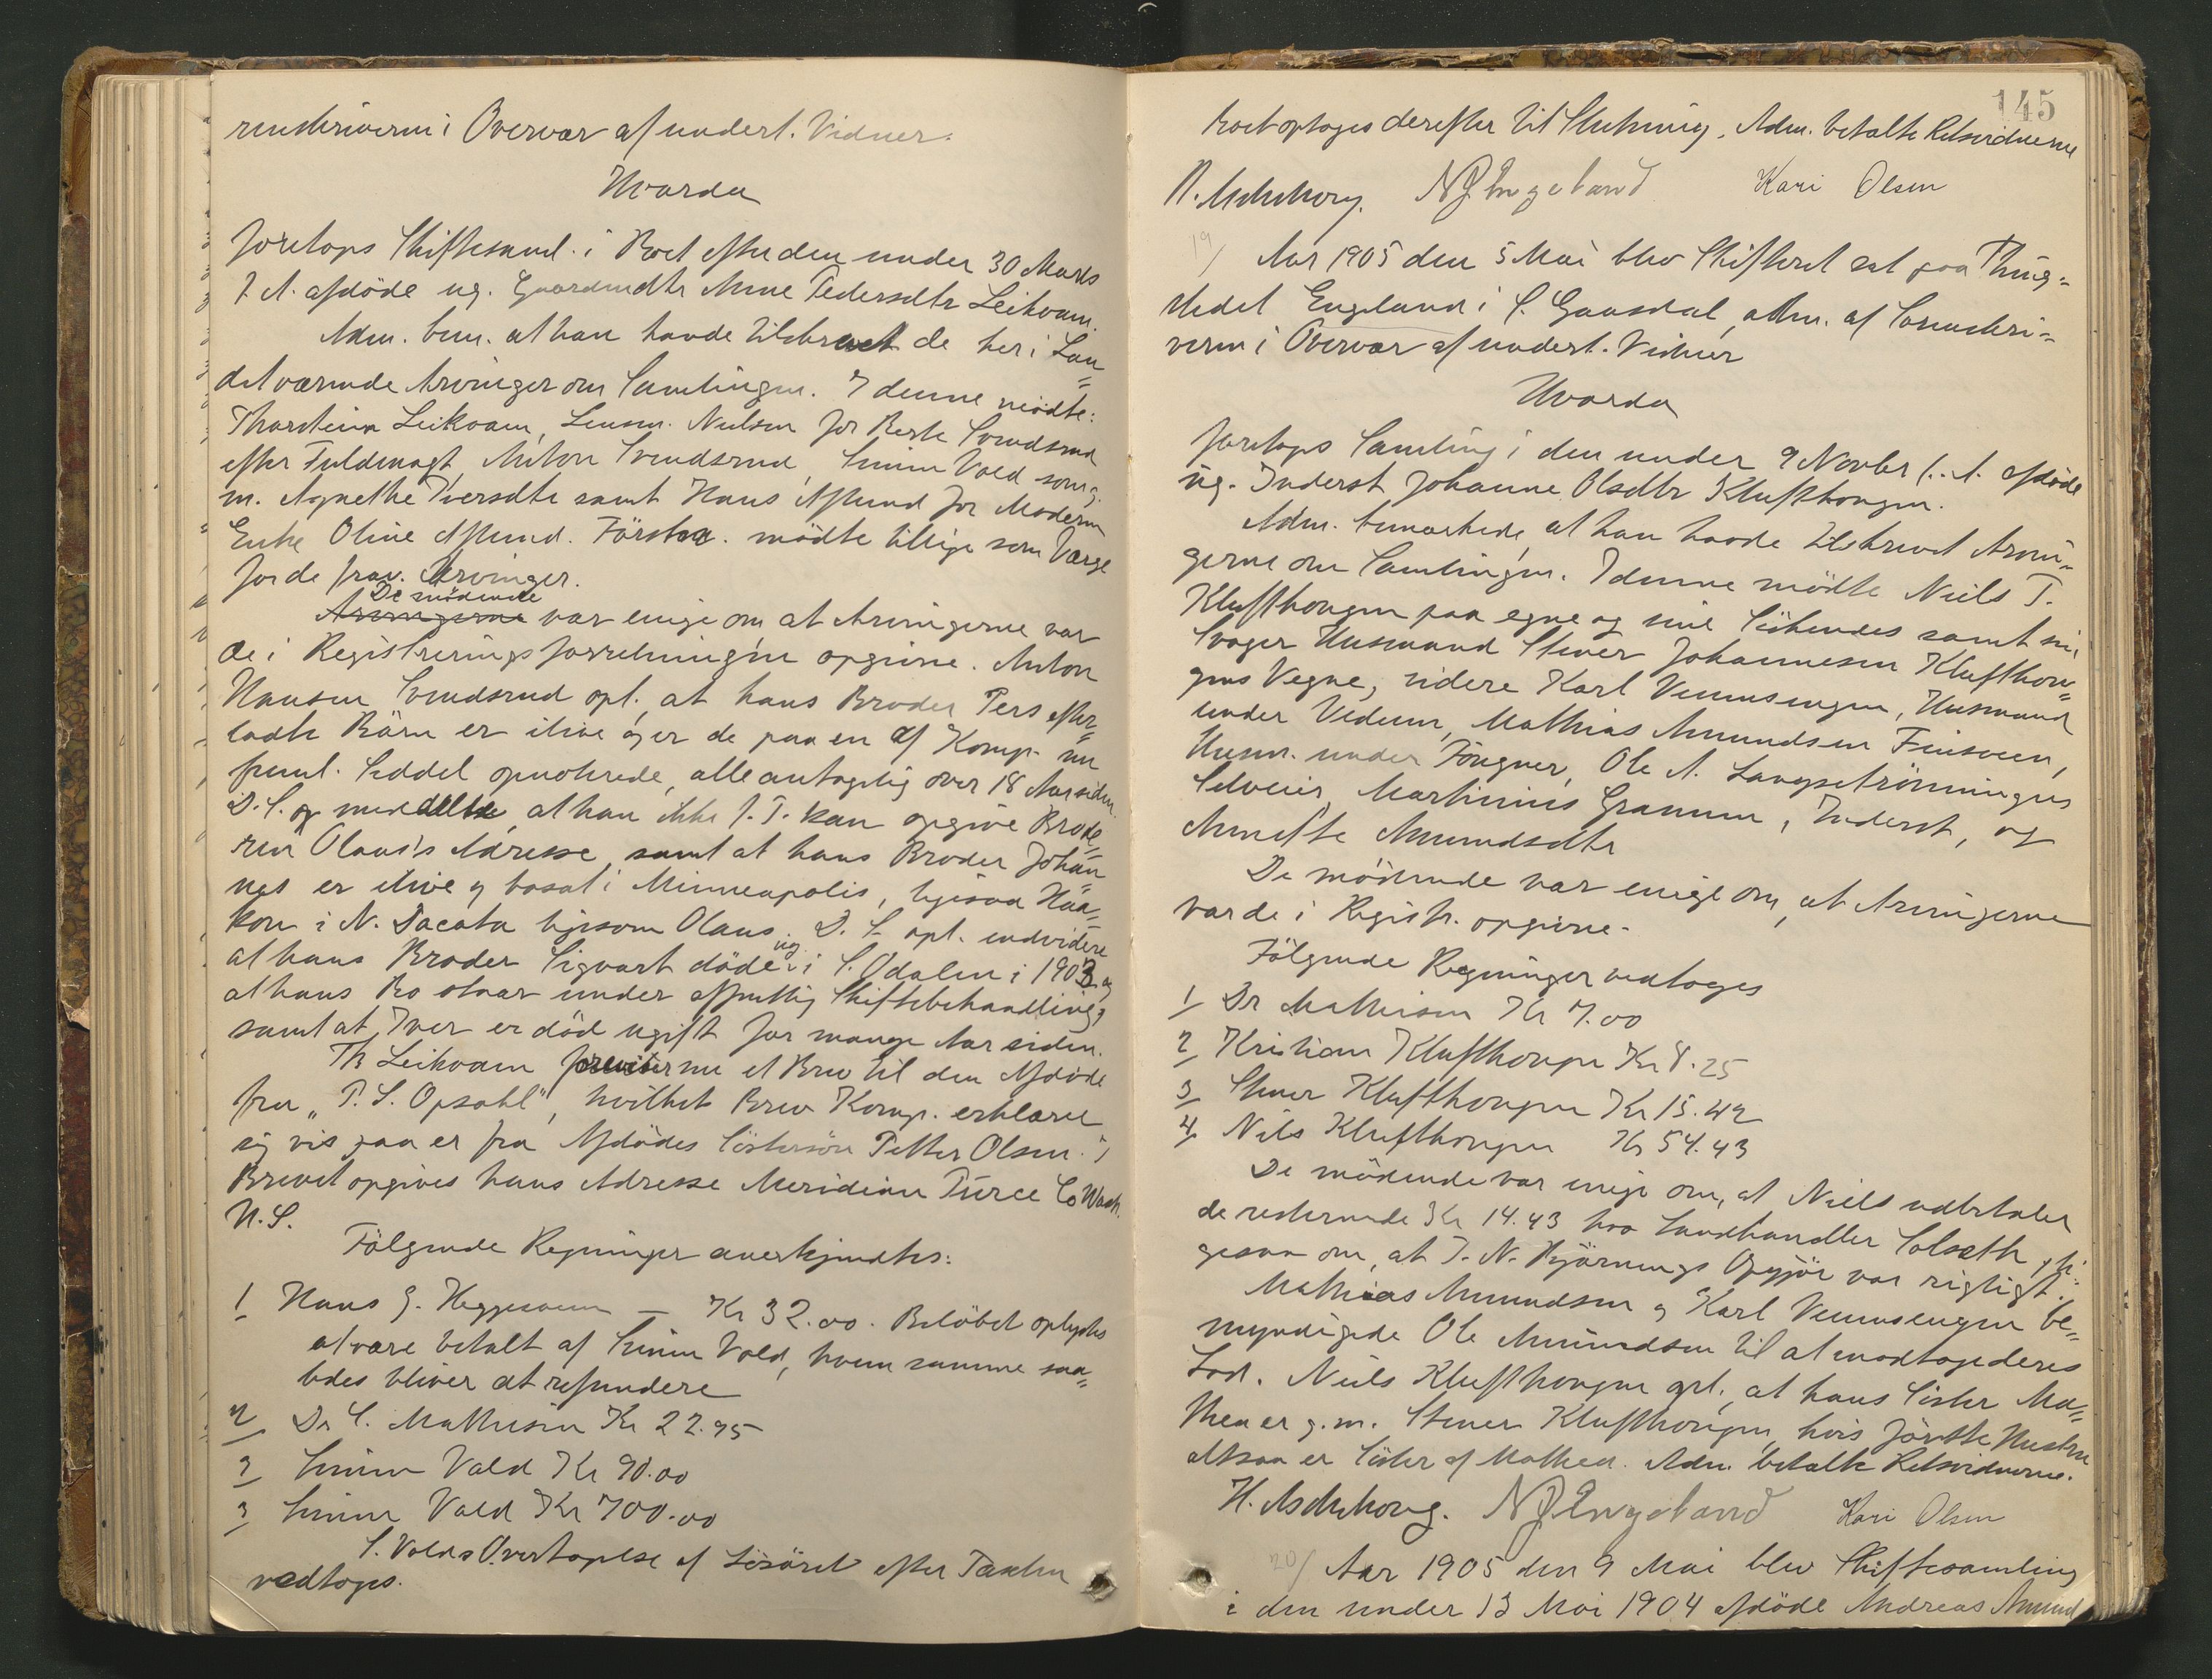 renskriveren i Overvær af undert. Vidner.
Hvorda
foretoges Skiftesaml. i Boet efter den under 30 Marts
f. A. afdöde ug. Gaardmdtr Anne Pedersdtr Leikvam.
Adm. bem. at han havde tilskrevet de her i Lan=
det værende Arvinger om Samlingen. I denne mödte:
Thorstein Leikvam, Lensm. Nielsen for Berte Svendsrud
efter Fuldmagt, Anton Svendsrud, Simen Vold som g.
m. Agnethe Iversdtr samt Hans Aflund for Moderen
Enke Oline Aflund. Förstn. mödte tillige som Værge
for de frav. Arvinger.
De mödende
Arvingerne var enige om, at Arvingerne var
de i Registreringsforretningen opgivne. Anton
Hansen Svendsrud opl., at hans Broder Pers efter=
ladte Börn er ilive og er de paa en af Komp. nu
freml. Seddel opnoterede, alle antagelig over 18 Aar siden
D.S. og meddelte, at han ikke f. T. kan opgive Brode=
ren Olaus's Adresse, samt at hans Broder Johan=
nes er ilive og bosat i Minneapolis, ligesaa Haa=
kon i N. Dacota ligesom Olaus. D. S. opl. endvidere
at hans Broder Sigvart döde ug. i S. Odalen i 1903 og
at hans Bo staar under offentlig Skiftebehandling,
samt at Iver er död ugift for mange Aar siden.
Th Leikvam foreviser nu et Brev til den Afdöde
fra "P. S. Opsahl", hvilket Brev Komp. erklærer
sig vis paa er fra Afdödes Sösterson Petter Olsen. I
Brevet opgives hans Adresse Meridian Pierce Co Wash.
N. S.
Fölgende Regninger anerkjendtes:
1 Hans G. Heggesveen – Kr 32.00. Belöbet oplystes
at være betalt af Simen Vold, hvem samme saa=
ledes bliver at refundere
2 Dr S. Mathisen Kr 22.95
3 Simen Vold Kr 90.00
3 Simen Vold Kr 700.00
S. Volds Overtagelse af Lösöret efter Taxten
vedtoges.
145
Boet optoges derefter til Slutning. Adm. betalte Retsvidnerne
H. Aschehoug. N J Engeland Kari Olsen
19/ Aar 1905 den 5 Mai blev Skifteret sat paa Thing=
stedet Engeland i S. Gausdal, adm. af Sorenskri=
veren i Overvær af undert. Vidner
Hvorda
foretoges Samling i den under 9 Novbr f. A. afdöde
ug. Inderst Johanne Olsdtr Klufthougen.
Adm. bemærkede, at han havde tilskrevet Arvin=
gerne om Samlingen. I denne mödte Niels T.
Klufthougen paa egne og sine Söskendes samt sin
Svoger Husmand Stener Johannesen Klufthou=
gens Vegne, videre Karl Vennesengen, Husmand
under Vedum, Mathias Amundsen Finsveen,
Husm. under Fougner, Ole A. Langsetrönningens
Selveier, Martinius Grammen, Inderst, og
Annette Amundsdtr
De mödende var enige om, at Arvingerne
var de i Registr. opgivne.
Fölgende Regninger vedtoges
1 Dr Mathisen Kr 7.00
2 Kristian Klufthougen Kr 8.25
3 Stener Klufthougen Kr 15.42
4 Nils Klufthougen Kr 54.43
De mödende var enige om, at Niels udbetaler
de resterende Kr 14.43 hos Landhandler Solseth, li=
gesaa om, at T. N. Bjørnungs Opgjör var rigtigt.
Mathias Amundsen og Karl Vennesengen be=
myndigede Ole Amundsen til at modtage deres
Lod. Niels Klufthougen opl., at hans Söster Ma=
thea er g. m. Stener Klufthougen, hvis förste Hustru
altsaa er Söster af Mathea. Adm. betalte Retsvidnerne.
H. Aschehoug. N J Engeland Kari Olsen
20/ Aar 1905 den 9 Mai blev Skiftesamling
i den under 13 Mai 1904 afdöde Andreas Amund